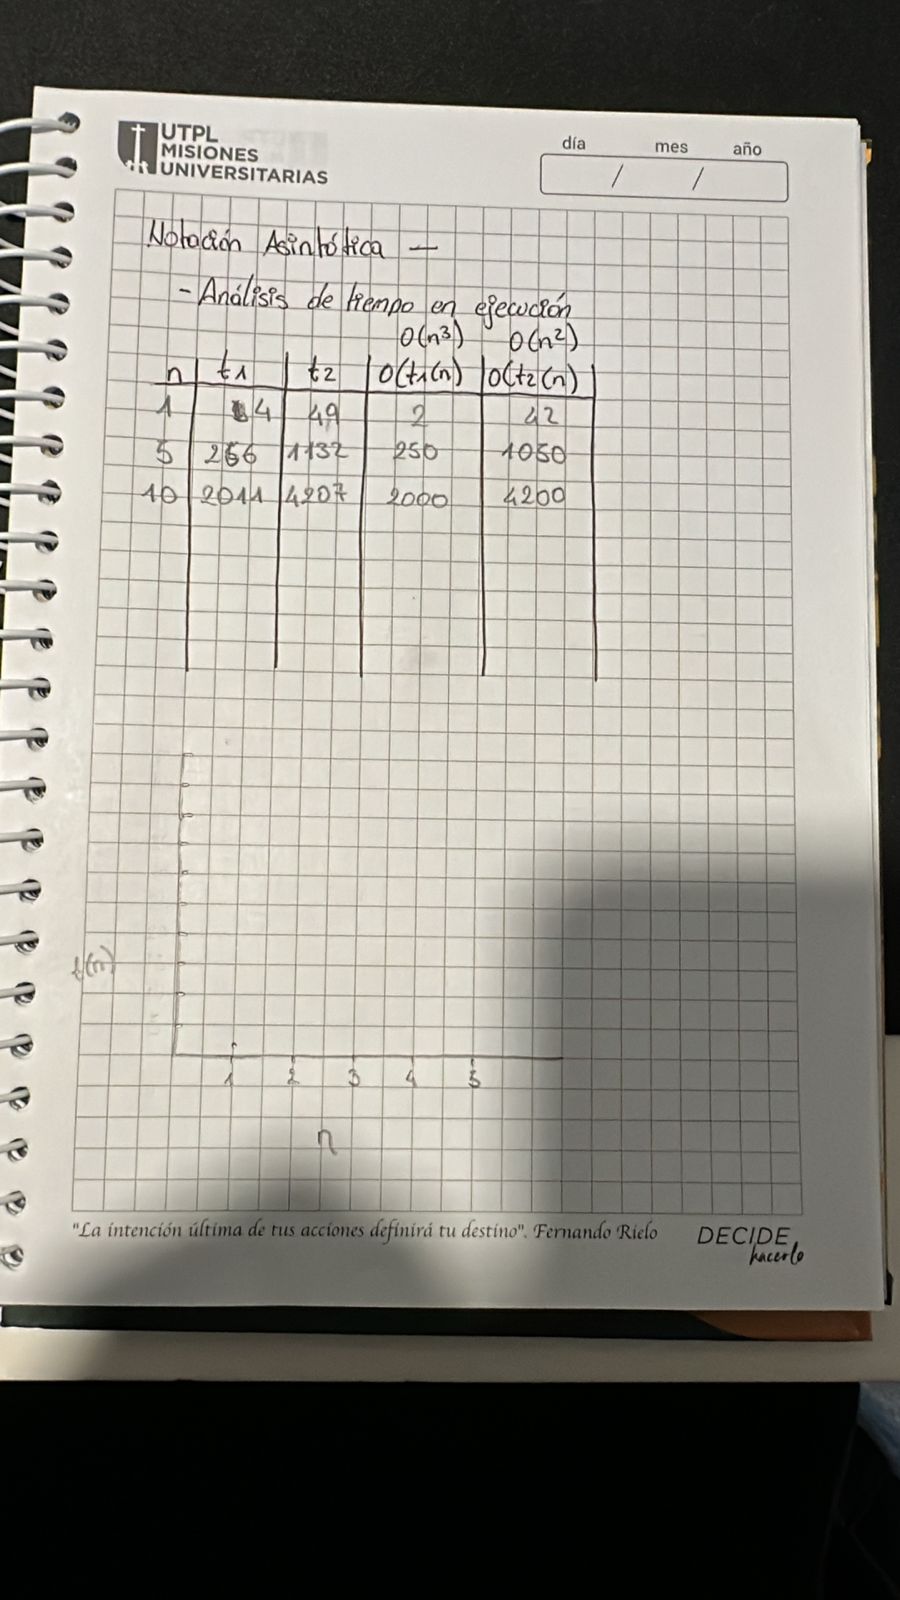 UTPL
MISIONES
UNIVERSITARIAS
día mes año
/ /
Notación Asintótica —
- Análisis de tiempo en ejecución
O(n³) O(n²)
n t1 t2 O(t1(n) O(t2(n)
1 4 49 2 42
5 256 1132 250 1050
10 2011 4207 2000 4200
t(n)
1 2 3 4 5
n
"La intención última de tus acciones definirá tu destino". Fernando Rielo
DECIDE
hacerlo